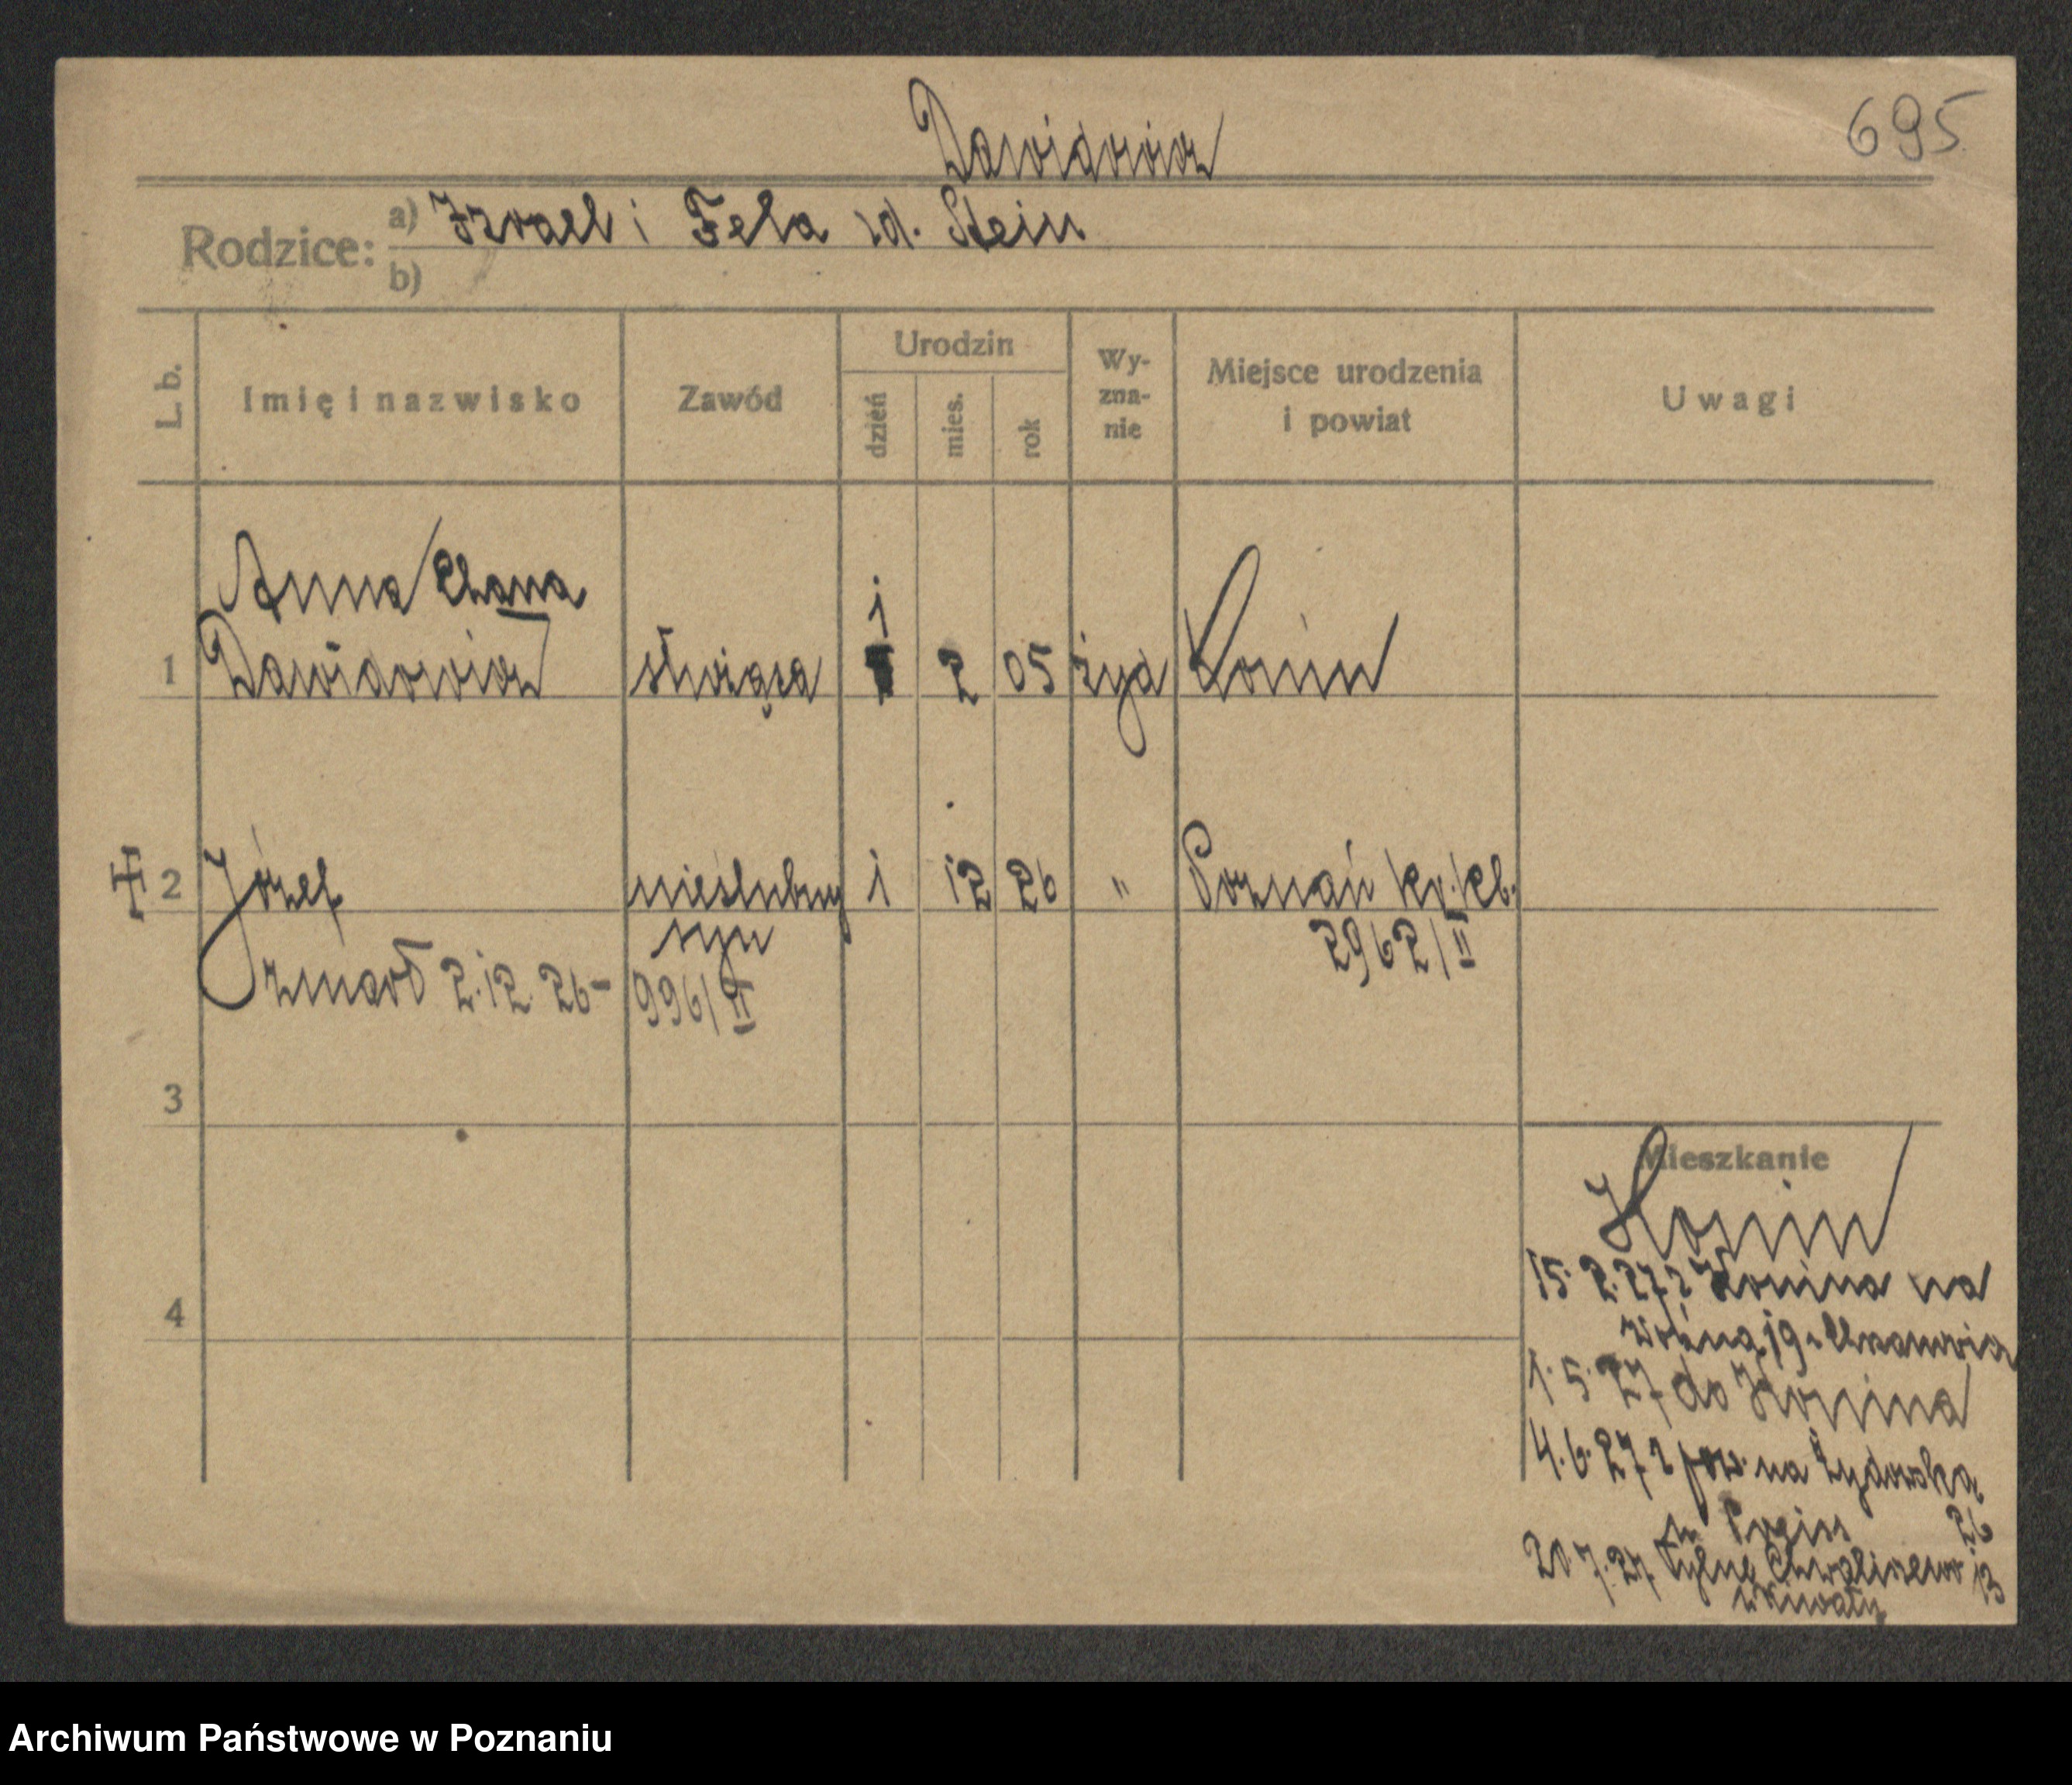 695
Dawidowicz
Rodzice: a) Izrael i Fela zd. Stein
b)
L. b. Imię i nazwisko Zawód Urodzin dzień mies. rok Wy-zna-nie Miejsce urodzenia i powiat Uwagi
Anna/Chana i
1 Dawidowicz służąca 2 05 żyd Konin
2 Józef nieślubny i 12 26 " Poznań kr./kb.
syn 2962/II
zmarł 2.12.26- 996/II
3
Mieszkanie
Konin
15.2.27 z Konina na
4
19
1.5.27 do Konina
4.6.27 z pow. na Żydowską
26
20.7.27 Tylne Chwaliszewo 13
Archiwum Państwowe w Poznaniu